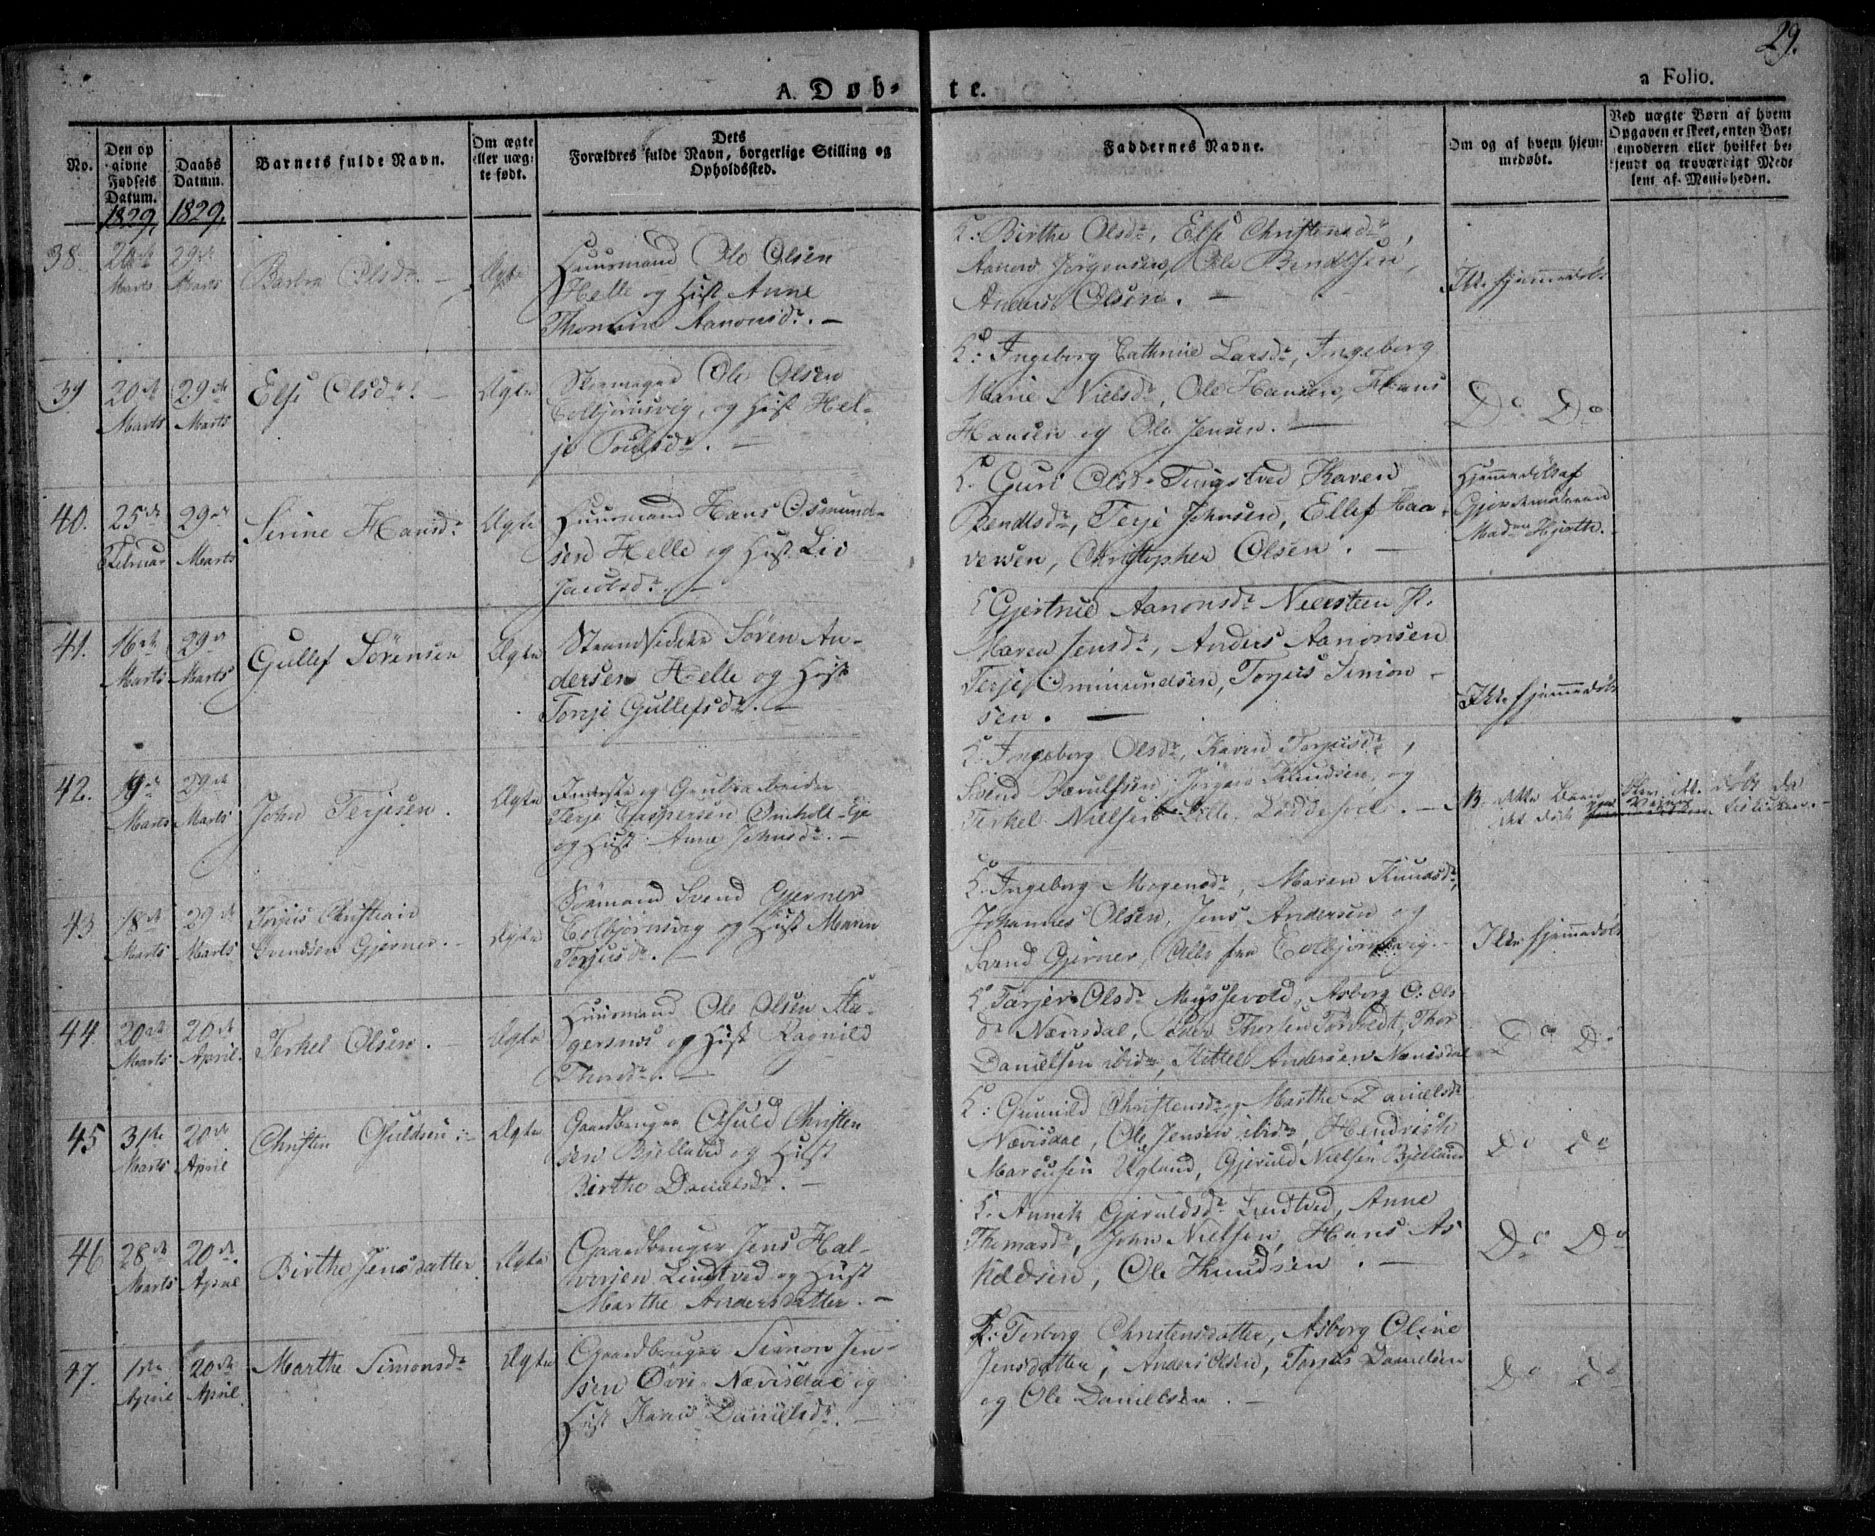 29.
A. Døb-
te.
a Folio.
No.
Den op
givne
Fødsels
Datum.
1829.
Daabs
Datum.
1829.
Barnets fulde Navn.
Om ægte
eller uæg-
te født.
Dets
Forældres fulde Navn, borgerlige Stilling og
Opholdssted.
Faddernes Navne.
Om og af hvem hjem-
medøbt.
Ved uægte Børn af hvem
Opgaven er skeet, enten Bar-
nemoderen eller hvilket be-
kjendt og troværdigt Med-
lem af Menigheden.
38.
29de
Marts
Barbra Olsdr. -
Ægte
Huusmand Ole Olsen
Helle og Hust Anne
Aanonsdr. -
F: Birthe Olsdr, Else Christensdr,
Jørgensen, Ole Bendtsen,
Anders Olsen. -
Ikke hjemmedøbt
39
20de
Marts
29de
Marts
Else Olsdr. -
Ægte
Ole Olsen
Colbjørnsvig, og Hust Hel-
je
F: Ingeborg Cathrine Larsdr, Ingeborg
Marie Nielsdr, Ole Hansen, Hans
Hansen og Ole Jensen. -
Do Do
40.
25de
Februar
29de
Marts
Serine Hansdr.
Ægte
Huusmand Hans Osmund-
sen Helle og Hust Liv
Jacobsdr. -
F. Guri Olsdr Tingstved Karen
Bendtsdr, Terje Johnsen, Ellef Haa-
versen, Christopher Olsen. -
Hjemmedøbt af
Gjordemoderen
Madme Hjorth.
41.
16de
Marts
29de
Marts
Gullef Sørensen
Ægte
Strandsidder Søren An-
dersen Helle og Hust
Torje Gullefsdr. -
F Gjertrud Aanonsdr
Maren Jensdr, Anders Aanonsen
Terje Ommundsen, Torjus Simon-
sen. -
Ikke hjemmedøbt
42.
19de
Marts
29de
Marts
John Terjesen.
Ægte
Inderste og Grubearbeider
Terje Caspersen
og Hust Anne Johnsdr. -
F. Ingeborg Olsdr, Karen Torjusdr,
Svend, Jørgen Knudsen, og
Terkel Nielsen Alle Løddesøl. -
NB. dette Barn blev døbt da
43
18de
Marts
29de
Marts
Torjus Christian
Svendsen Gjerner. -
Ægte
Sømand Svend Gjerner
Colbjørnsvig og Hust Maren
Torjusdr. -
F. Ingeborg Mogensdr, Maren Knudsdr,
Johannes Olsen, Jens Andersen og
Svend Gjerner, Alle fra Colbjørnsvig. -
Ikke hjemmedøbt
44.
20de
Marts
20de
April.
Terkel Olsen. -
Ægte
Huusmand Ole Olsen Ha-
gersnes og Hust Ragnild
Thorsdr. -
F Torjer Olsdr Mysevold, Asborg O: Ols
dr Nævisdal, Thor
Danielsen ibid., Kittel Andersen Nævisdal
Do Do
45
31te
Marts
20de
April
Christen Osuldsen. -
Ægte
Gaardbruger Osuld Christen
sen Bjelland og Hust
Birthe Danielsdr. -
F: Gunild Christensdr, Marthe Danielsdr
Nævisdal, Ole Jensen ibid, Hendrick
Marcusen Ugland, Gjeruld Nielsen Bjelland
Do Do
46
28de
Marts
20de
April
Birthe Jensdatter.
Ægte
Gaardbruger Jens Hal-
vorsen Lindtved og Hust
Marthe Andersdatter. -
F. Annik Gjeruldsdr Lindtved, Anne
Thomasdr, John Nielsen, Hans As
kildsen, Ole Knudsen. -
Do Do
47.
1ste
April
20de
April.
Marthe Simonsdr
Ægte
Gaardbruger Simon Jen-
sen Øvre Nævisdal og
Hust Karen Danielsdr. -
F: Torborg Christensdatter, Asborg Oline
Jensdatter, Anders Olsen, Torjus Danielsen
og Ole Danielsen. -
Do Do